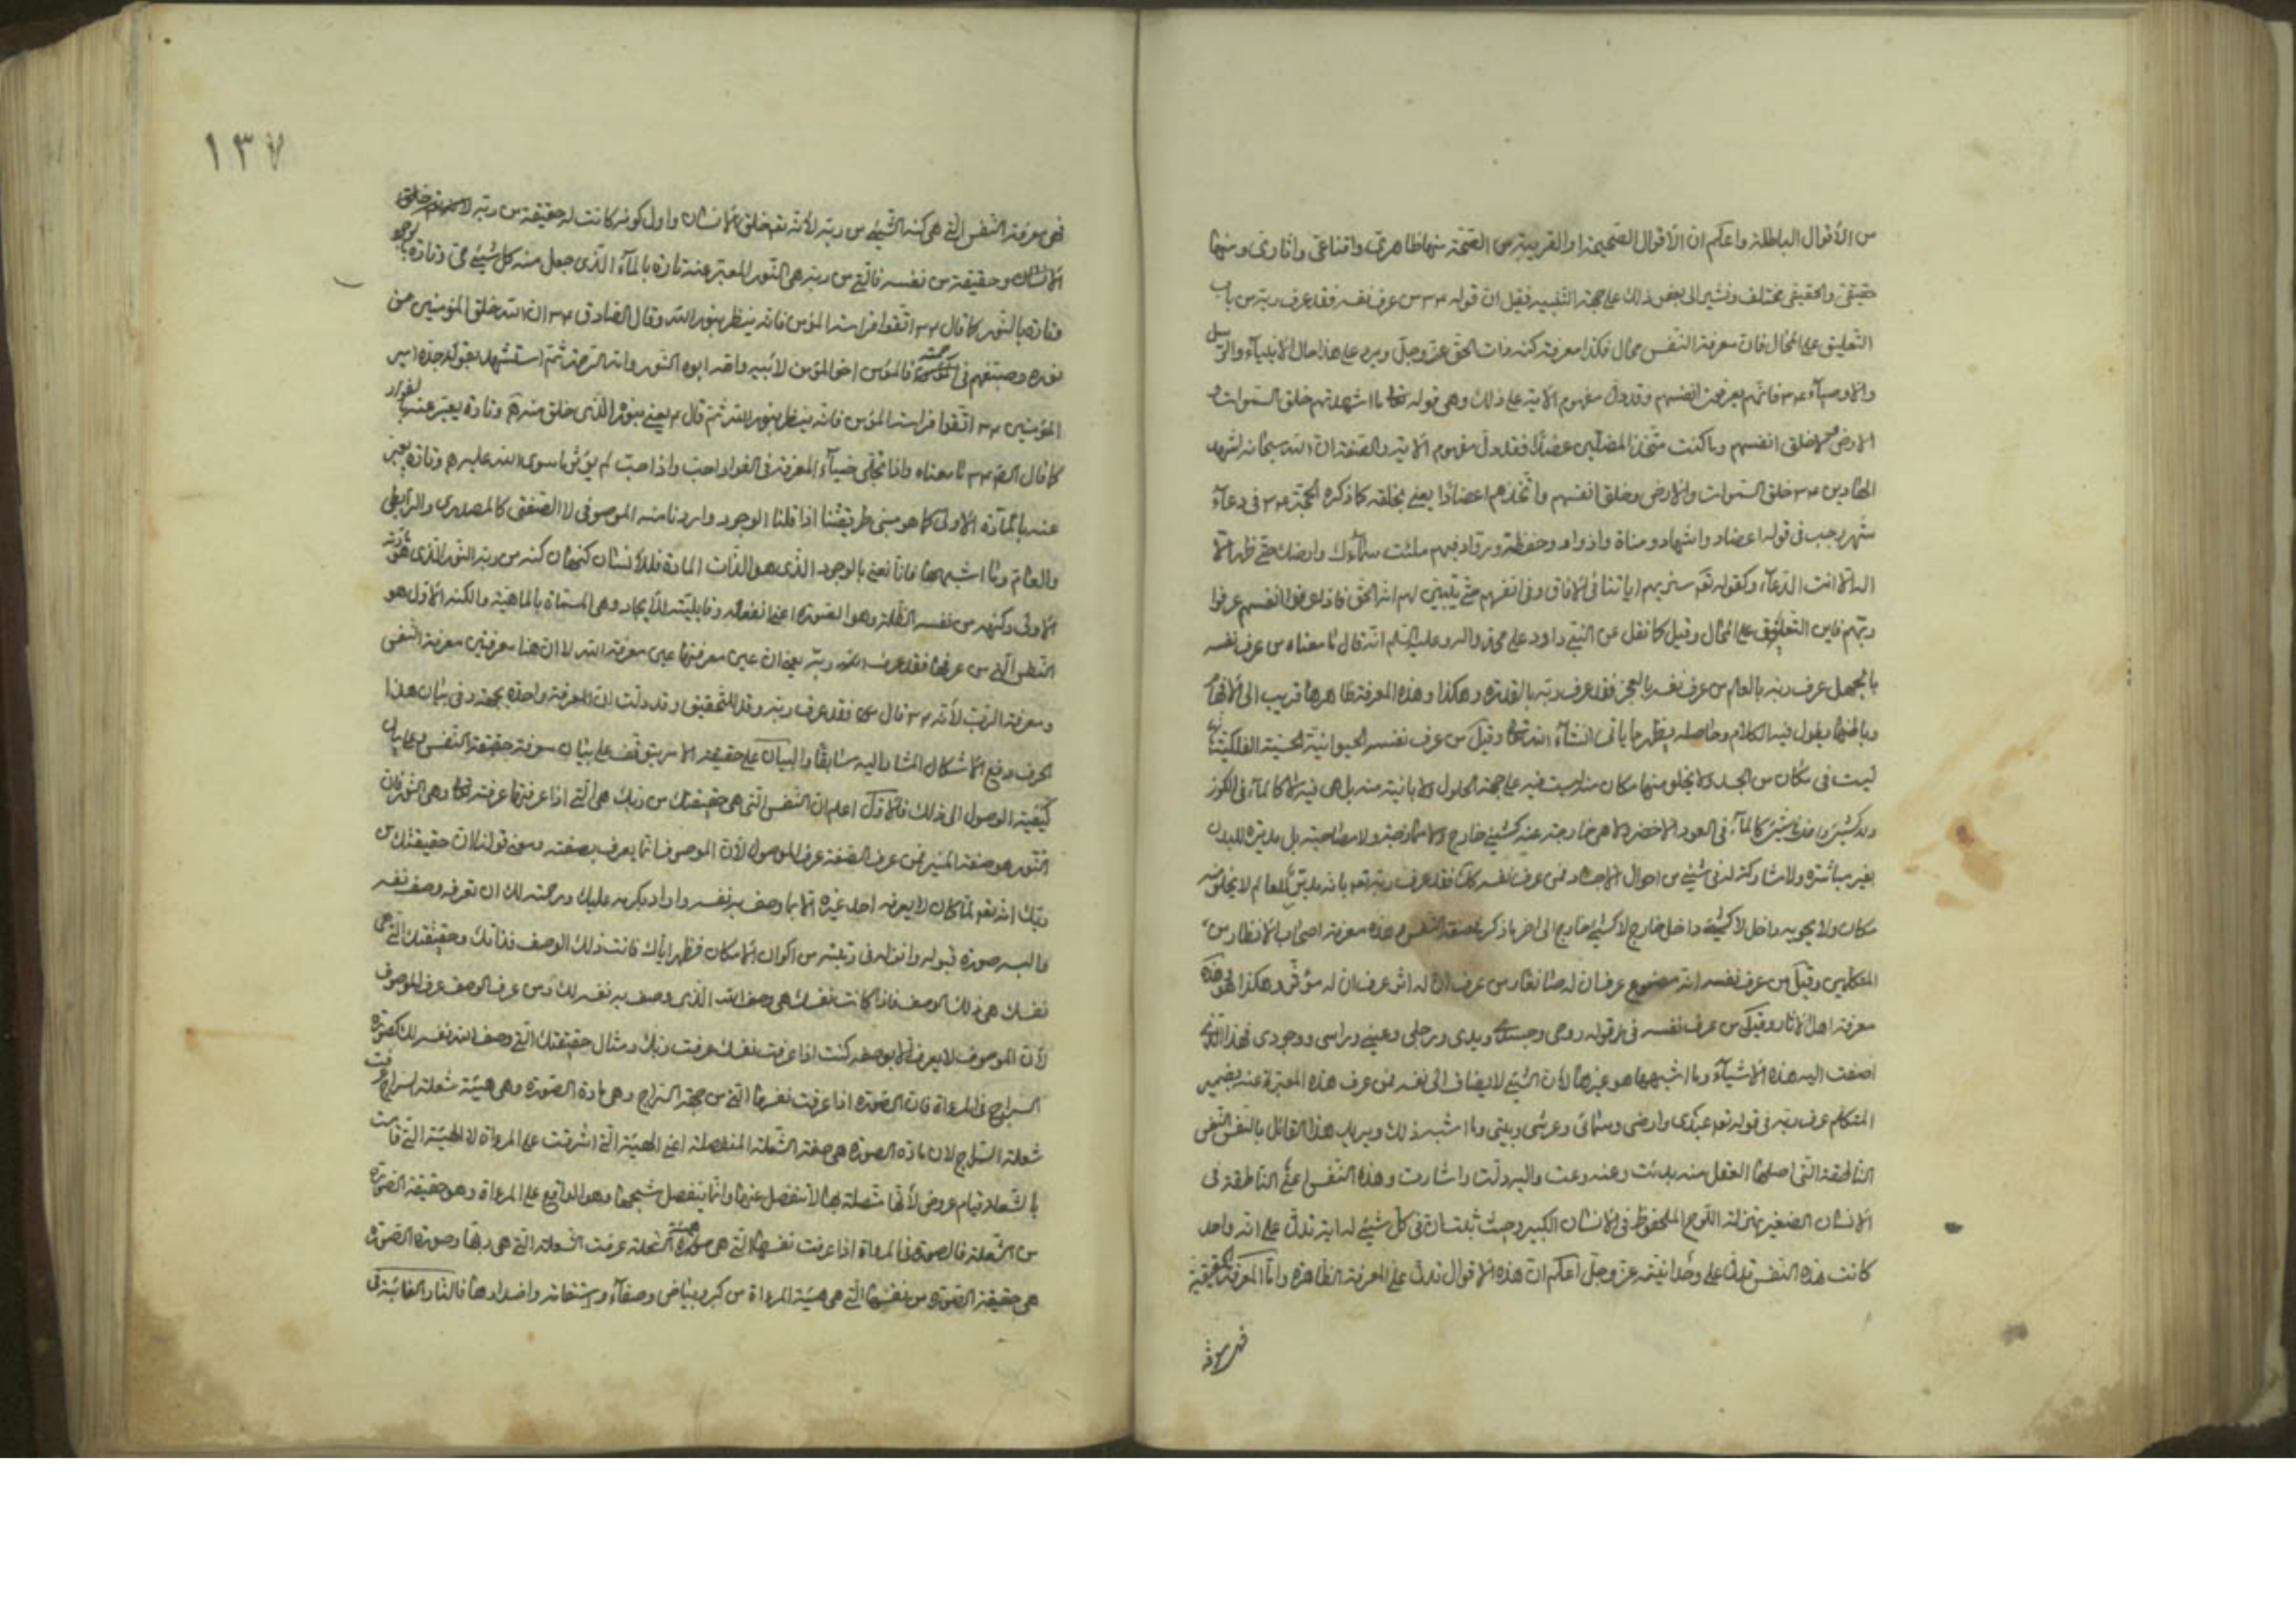 من الأقوال الباطلة واعلم ان الأقوال الصحيحة او القريبة من الصحة منها ظاهري واقناعي واثاري ومنها
حقيقي والحقيقي مختلف ونشير الى بعض ذلك على جهة التنبيه فقيل ان قوله ٤٣ من عرف نفسه فقد عرف ربه من باب
التعليق على المحال فان معرفة النفس محال فكذا معرفة كنه ذات الحق عز وجل ويرد على هذا حال الانبياء والرسل
والاوصياء ٤٣ فانهم يعرفون انفسهم وقد دل مفهوم الاية على ذلك وهي قوله تعالى ما اشهدتهم خلق السموات و
الارض ولا خلق انفسهم وما كنت متخذ المضلين عضدا فقد دل مفهوم الاية والصفة ان الله سبحانه اشهد
الهادين ٤٣ خلق السموات والارض وخلق انفسهم واتخذهم اعضادا يعني لخلقه كما ذكره الحجة ٤٣ في دعاء
شهر رجب في قوله اعضاد واشهاد ومناة واذواد وحفظة ورواد فبهم ملئت سماءك وارضك حتى ظهر الا
اله الا انت الدعاء وكقوله تع سنريهم اياتنا في الافاق وفي انفسهم حتى يتبين لهم انه الحق فاذا عرفوا انفسهم عرفوا
ربهم فاين التعليق على المحال وقيل كما نقل عن النبي داود على محمد واله وعليه السلم انه قال ما معناه من عرف نفسه
بالجهل عرف ربه بالعلم من عرف نفسه بالعجز فقد عرف ربه بالقدرة وهكذا وهذه المعرفة ظاهرها قريب الى الافهام
وباطنها يطول فيه الكلام وحاصله يظهر مما ياتي انشاء الله تعالى وقيل من عرف نفسه الحيوانية الحسية الفلكية بانها
ليست في مكان من الجسد ولا يخلو منها مكان منه ليست فيه على جهة الحلول ولا بائنة منه بل هي فيه لا كالماء في الكوز
كالماء في العود الاخضر ولا هي خارجة عنه كشيئ خارج ولا ممازجة ولا مصاحبة بل مدبرة للبدن
بغير مباشرة ولا مشاركة له في شيئ من احوال الاجساد فمن عرف نفسه كذا فقد عرف ربه تع بانه مدبر للعالم لا يخلو منه
مكان ولا يحويه داخل لا كشيئ داخل خارج لا كشيئ خارج الى اخر ما ذكر هذه معرفة اصحاب الانظار من
المتكلمين وقيل من عرف نفسه انه مصنوع عرف ان له صانعا ومن عرف انه اثر عرف ان له مؤثر وهكذا وهذه
معرفة اهل الاثار وقيل من عرف نفسه في قوله روحي وجسدي ويدي ورجلي وعيني وراسي ووجودي فهذا الذي
اضفت اليه هذه الاشياء وما اشبهها هو غيرها لان الشيئ لا يضاف الى نفسه فمن عرف هذه المعبر عنه بضمير
المتكلم عرف ربه في قوله تع عبدي وارضي وسمائي وعرشي وبيتي وما اشبه ذلك ويريد هذا القائل بالنفس النفس
الناطقة التي اصلها العقل منه بدئت وعنه وعت واليه دلت واشارت وهذه النفس اعني الناطقة في
الانسان الصغير بمنزلة اللوح المحفوظ في الانسان الكبير وحيث ثبت ان في كل شيئ له اية تدل على انه واحد
كانت هذه النفس تدل على وحدانيته عز وجل اعلم ان هذه الاقوال تدل على المعرفة الظاهرة واما المعرفة الحقيقية
فهي معرفة
١٣٧
فهي معرفة النفس التي هي كنه الشيئ من ربه لانه تع خلق الانسان واول كونه كانت له حقيقة من ربه
الانسان وحقيقة من نفسه فالتي من ربه هي النور المعبر عنه تارة بالماء الذي جعل منه كل شيئ حي وتارة بالوجود
وتارة بالنور كما قال ٤٣ اتقوا فراسة المؤمن فانه ينظر بنور الله وقال الصادق ٤٣ ان الله خلق المؤمنين من
نوره وصبغهم في رحمته فالمؤمن اخو المؤمن لابيه وامه ابوه النور وامه الرحمة ثم استشهد بقول جده امير
المؤمنين ٤٣ اتقوا فراسة المؤمن فانه ينظر بنور الله ثم قال ٤ يعني بنوره الذي خلق منه وتارة يعبر عنه بالفؤاد
كما قال ٤٣ ما معناه واذا تجلى ضياء المعرفة في الفؤاد احب واذا احب لم يؤثر ما سوى الله عليه وتارة يعبر
عنه بالمادة الاولى كما هو مبنى طريقتنا اذا قلنا الوجود واردنا منه الموصوفي لا الصفتي كالمصدري والرابطي
والعام وما اشبهها فانا نعني بالوجود الذي هو الذات المادة فللانسان كنهان كنه من ربه النور الذي هو مادته
الاولى وكنه من نفسه الظلمة وهو الصورة اعني انفعاله وقابليته للايجاد وهي المسماة بالماهية والكنه الاول هو
النفس التي من عرفها فقد عرف الله ربه يعني ان عين معرفتها عين معرفة الله لا ان هنا معرفتين معرفة النفس
ومعرفة الرب لانه ٤٣ قال فقد عرف ربه وقد للتحقيق وقد دلت ان المعرفة واحدة وفي بيان هذا
الحرف ورفع الاشكال المشار اليه سابقا والبيان على حقيقة الامر يتوقف على بيان معرفة حقيقة النفس وعلى بيان
كيفية الوصول الى ذلك فالاول اعلم ان النفس التي هي حقيقتك من ربك هي التي اذا عرفتها عرفته تعالى وهي النور فان
النور هو صفة المنير فمن عرف الصفة عرف الموصوف لان الموصوف انما يعرف بصفته ومعنى قولنا ان حقيقتك من
ربك انه تع لما كان لا يعرفه احد غيره الا بما وصف به نفسه واراد بكرمه عليك ورحمته لك ان تعرفه وصف نفسه
فالبسه صورة قبوله وانزله في رتبته من اكوان الامكان فظهر اياك فانت ذلك الوصف فذاتك وحقيقتك التي هي
نفسك هي ذلك الوصف فاذا كانت نفسك هي وصف الله الذي وصف به نفسه لك ومن عرف الوصف عرف الموصوف
لان الموصوف لا يعرف الا بوصفه كنت اذا عرفت نفسك عرفت ربك ومثال حقيقتك التي وصف الله نفسه لك كصورة
السراج في المرءاة فان الصورة اذا عرفت نفسها التي من جهة السراج وهي مادة الصورة وهي هيئة شعلة السراج عرفت
شعلة السراج لان مادة الصورة هي صفة الشعلة المنفصلة اعني الهيئة التي اشرقت على المرءاة لا الهيئة التي قامت
بالشعلة قيام عروض لانها متصلة بها لا تنفصل عنها وانما ينفصل شبحها وهو الواقع على المرءاة وهو حقيقة الصورة
من الشعلة فالصورة في المرءاة اذا عرفت نفسها التي هي هيئة الشعلة عرفت الشعلة التي هي ربها وصورة الصورة
هي حقيقة الصورة من نفسها التي هي هيئة المرءاة من كبر وبياض وصفاء واستقامة واضدادها فالنار الغائبة في